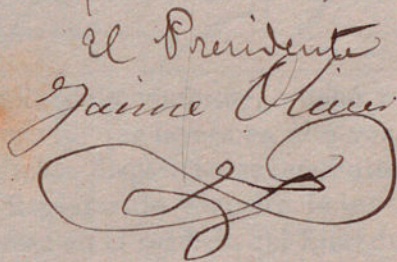 El Presidente
Jaime Oliver